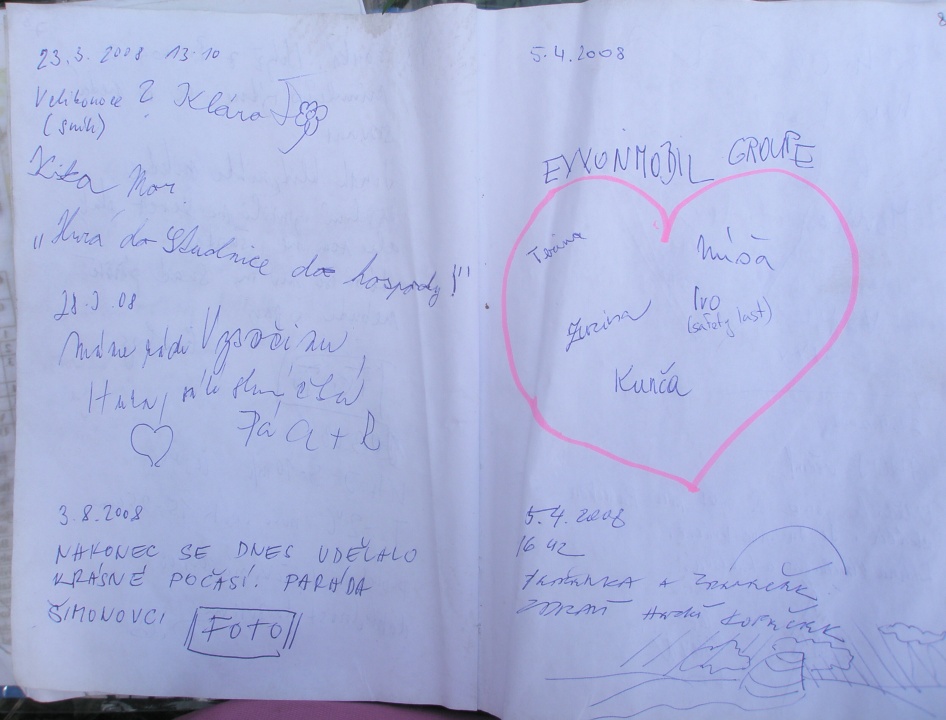 23.3.2008 13.10
Velikonoce ? Klára
(sníh)
Kika Mor.
"Hurá do Studnice do hospody!"
28.3.08
Máme rádi Vysočinu
Hurá,
Pá A + R
3.8.2008
NAKONEC SE DNES UDĚLALO
KRÁSNÉ POČASÍ. PARÁDA
ŠIMONOVCI FOTO
8
5.4.2008
EXXONMOBIL GROUPE
Míšà
Ivo
(safety last)
Zuzina
Kunča
5.4.2008
16 42